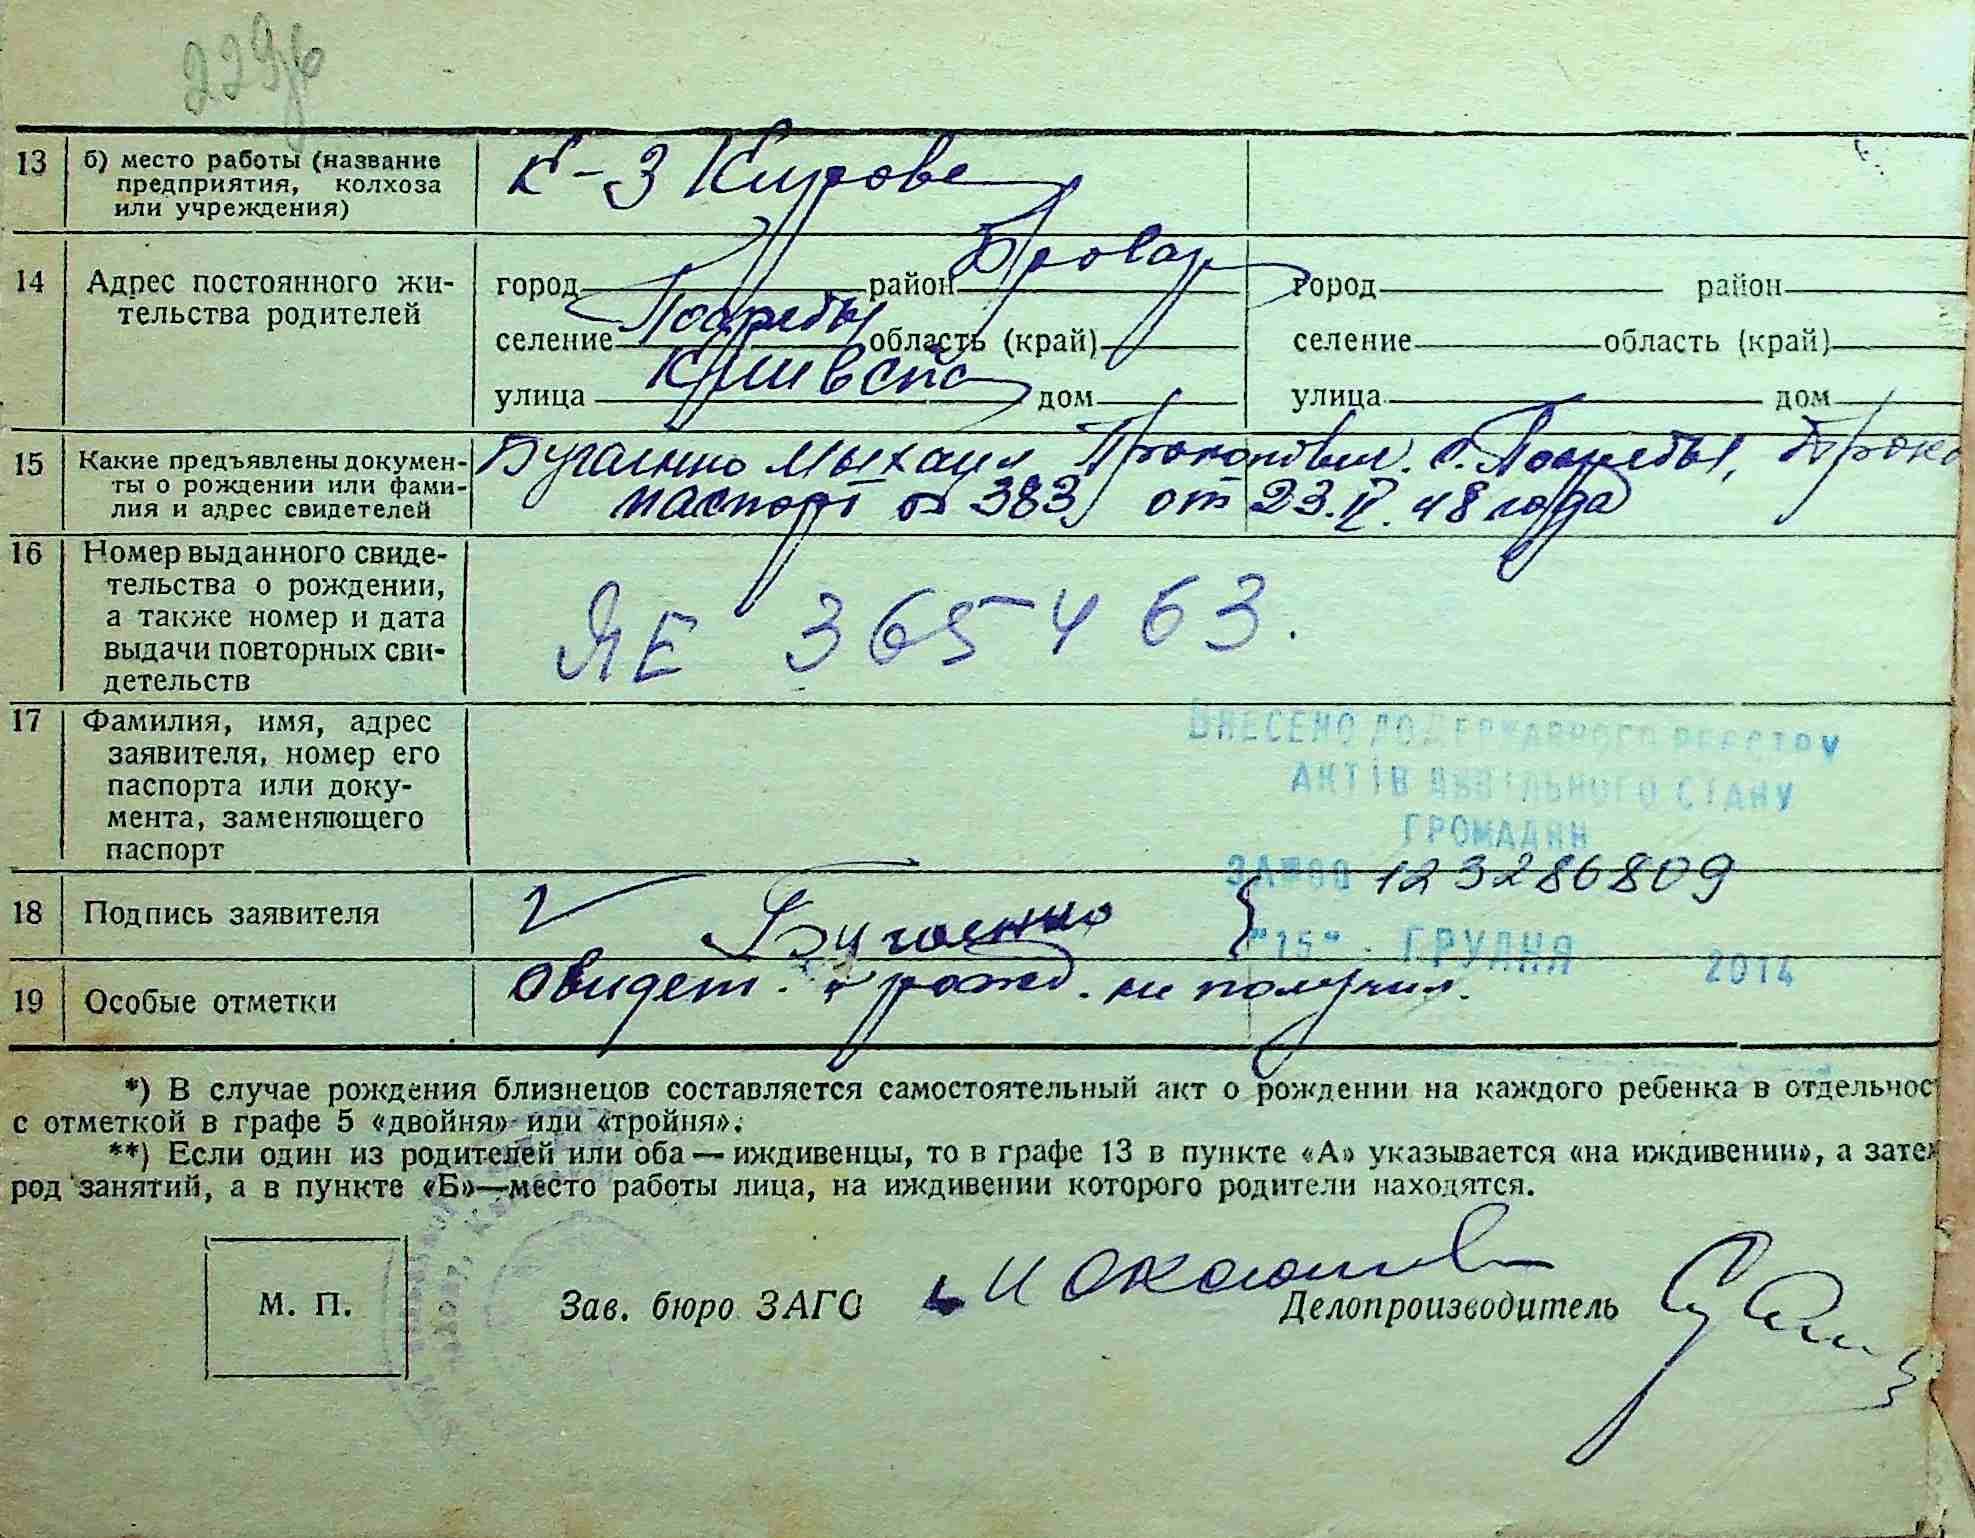 229
13 б) место работы (название предприятия, колхоза или учреждения) К-З Кирова
14 Адрес постоянного жительства родителей
город район Бровар город район
селение Погребы область (край) селение область (край)
улица Київська дом улица дом
15 Какие предъявлены документы о рождении или фамилия и адрес свидетелей
Бугаенко Михаил Прокопович. с. Погребы,
паспорт 383 от 23.IV.48 года
16 Номер выданного свидетельства о рождении, а также номер и дата выдачи повторных свидетельств ЯЕ 365463.
17 Фамилия, имя, адрес заявителя, номер его паспорта или документа, заменяющего паспорт
ВНЕСЕНО ДО ДЕРЖАВНОГО РЕЄСТРУ
АКТІВ ЦИВІЛЬНОГО СТАНУ
ГРОМАДЯН
123286809
18 Подпись заявителя Бугаенко
"15" ГРУДНЯ 2014
19 Особые отметки Свидет. о рожд. не получил.
*) В случае рождения близнецов составляется самостоятельный акт о рождении на каждого ребенка в отдельнос
с отметкой в графе 5 «двойня» или «тройня».
**) Если один из родителей или оба — иждивенцы, то в графе 13 в пункте «А» указывается «на иждивении», а зате
род занятий, а в пункте «Б»—место работы лица, на иждивении которого родители находятся.
М. П. Зав. бюро ЗАГС Делопроизводитель